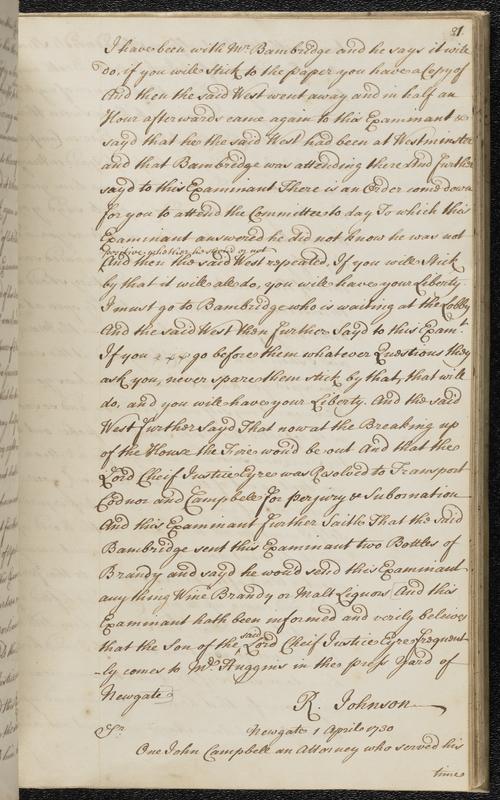 21.
I have been with Mr. Bambridge and he says it will
do, if you will stick to the paper you have a Copy of
And then the said West went away and in half an
Hour afterwards came again to this Examinant &
sayd that he the said West had been at Westminster
and that Bambridge was attending there And further
sayd to this Examinant There is an Order come down
for you to attend the Committee to day To which this
Examinant answered he did not know he was not
positive whether he should or not
And then the said West repeated. If you will Stick
by that it will all do, you will have your Liberty.
I must go to Bambridge who is waiting at the Lobby
And the said West then further Sayd to this Examt.
If you go before them whatever Questions they
ask you, never spare them stick by that, that will
do, and you will have your Liberty. And the said
West further Sayd That now at the Breaking up
of the House the Fire would be out And that the
Lord Cheif Justice Eyre was Resolved to Transport
Codnor and Campbell for perjury & Subornation
And this Examinant further Saith That the said
Bambridge sent this Examinant two Bottles of
Brandy and sayd he would send this Examinant
any thing Wine Brandy or Malt Liquors And this
Examinant hath been informed and verily beleives
that the Son of the said Lord Cheif Justice Eyre frequent
-ly comes to Mr. Huggins in the press Yard of
Newgate
R. Johnson
Sr. Newgate 1 April 1730
One John Campbell an Attorney who served his
time